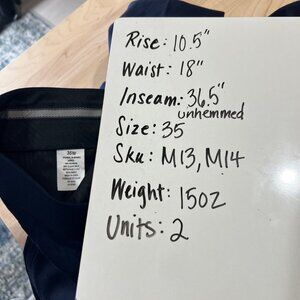 Rise: 10.5"
Waist: 18"
Inseam: 36.5"
unhemmed
Size: 35
Sku: M13, M14
Weight: 15oz
Units: 2